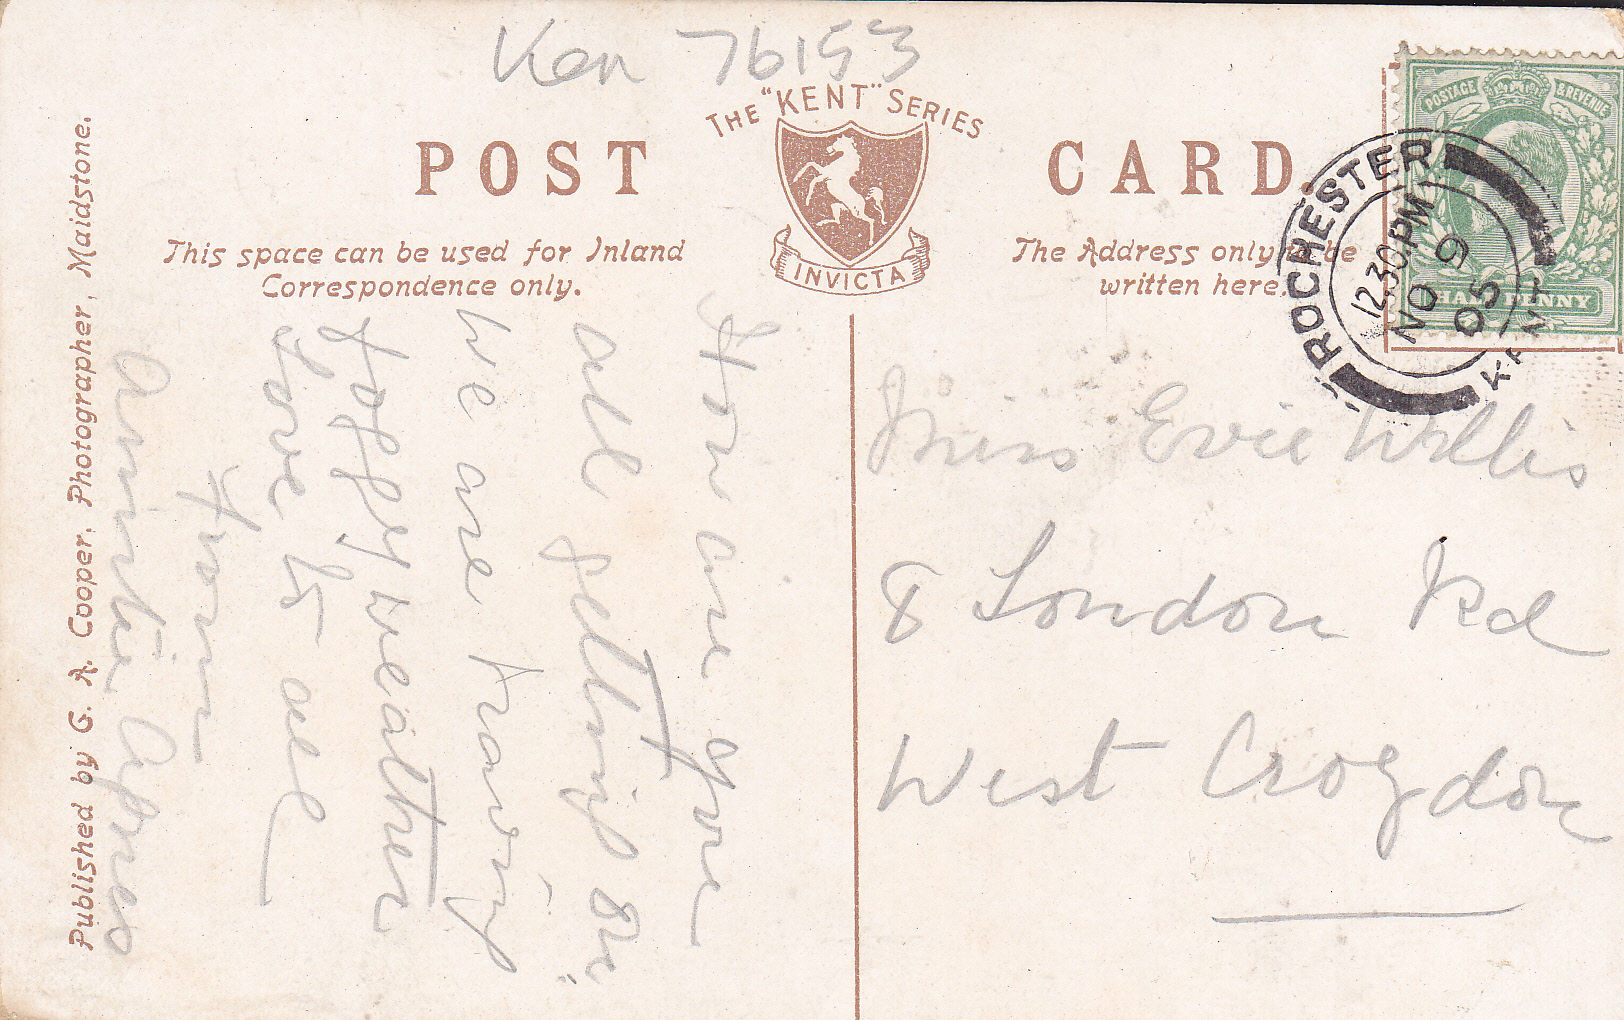 Ken 76153
THE "KENT" SERIES
POST CARD
INVICTA
This space can be used for Inland
Correspondence only.
The Address only to be
written here.
POSTAGE & REVENUE
HALFPENNY
ROCHESTER
12.30 PM
NO 9
05
KENT
How are you
all getting on
we are having
foggy weather
Love to all
from
Auntie Agnes
Miss Evie Willis
8 London Rd
West Croydon
Published by G. A. Cooper, Photographer, Maidstone.